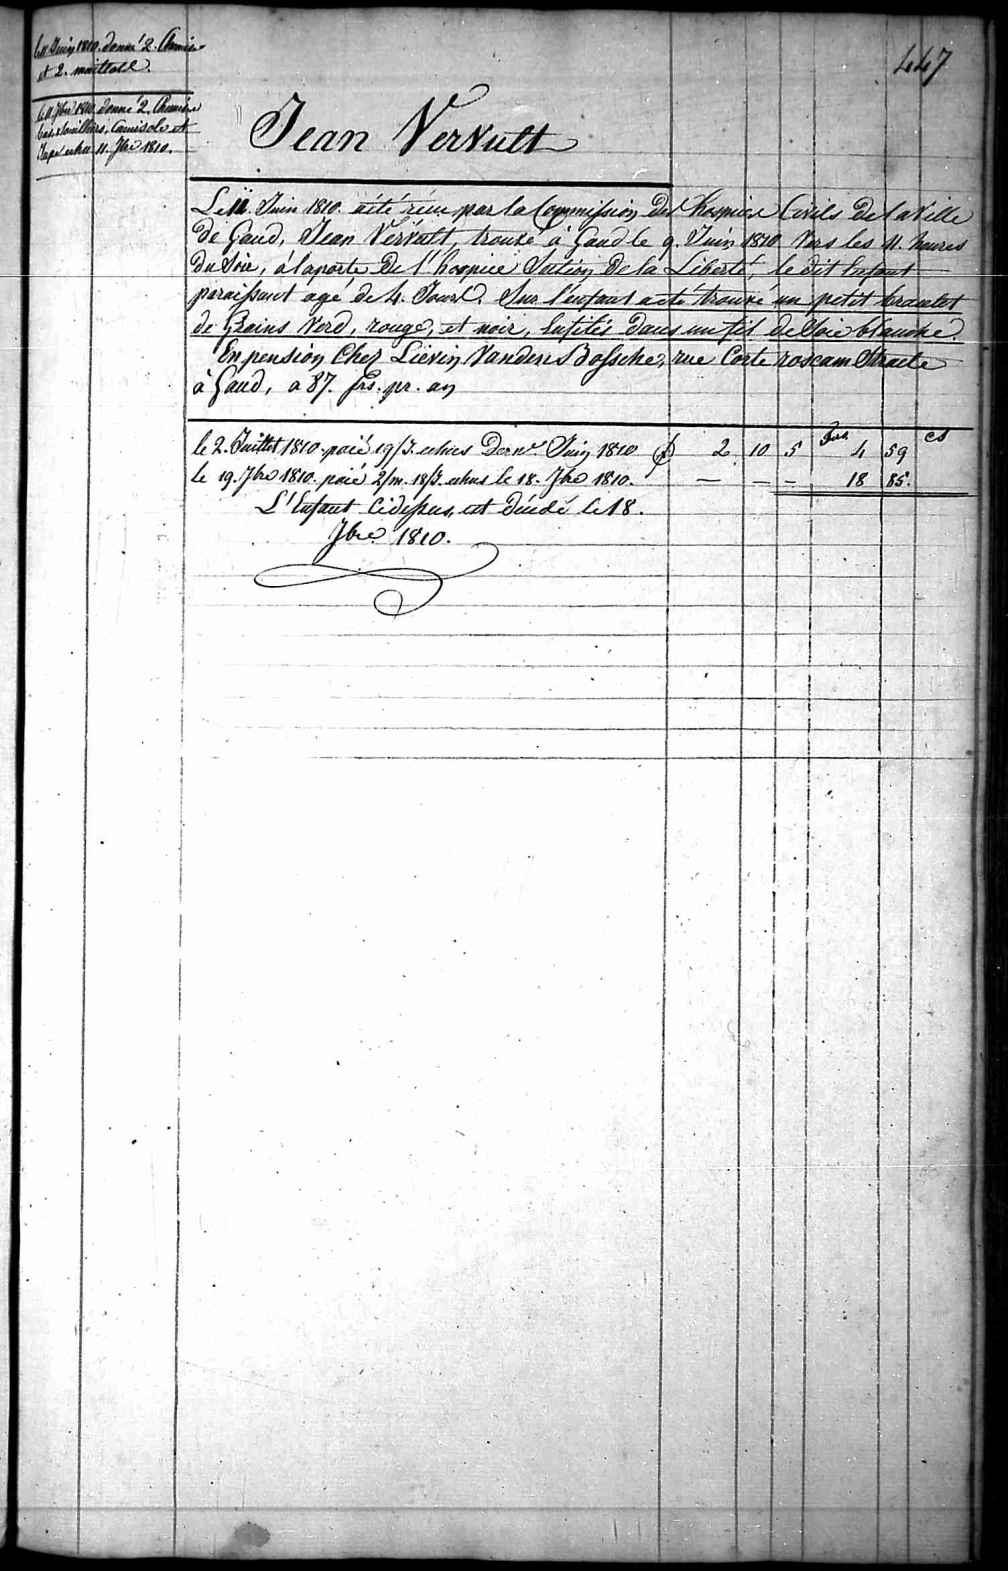 447
le 11. Juin 1810. donné 2. Chemises
et 2. maillots.
le 11. 7bre 1810. donné 2. Chemises
bas, souilliers, Camisole et
Jupe echu 11. 7bre 1810.
Jean Vervult
Le 11. Juin 1810. a été réçu par la Commission des hospices Civils de la Ville
de Gand, Jean Vervult, trouvé à Gand le 9. Juin 1810 vers les 11. heures
du Soir, à la porte de l'hospice Section de la Liberté, le dit Enfant
paraissant agé de 4. Jours. Sur l'enfant a été trouvé un petit bracelet
de Grains Verd, rouge, et noir, Enfilés dans un fil de Soie blanche.
En pension Chez Liévin Vanden Bossche, rue Corte roscam Straete
à Gand, a 87. frs. pr. an
frs cs
le 2. Juillet 1810. paié 19/J. echus Dernr. Juin 1810 2 10 5 4 59
le 19. 7bre 1810. paié 2/m. 18/J. echus le 18. 7bre 1810. — — — 18 85.
L'Enfant Cidessus est Décédé le 18.
7bre 1810.